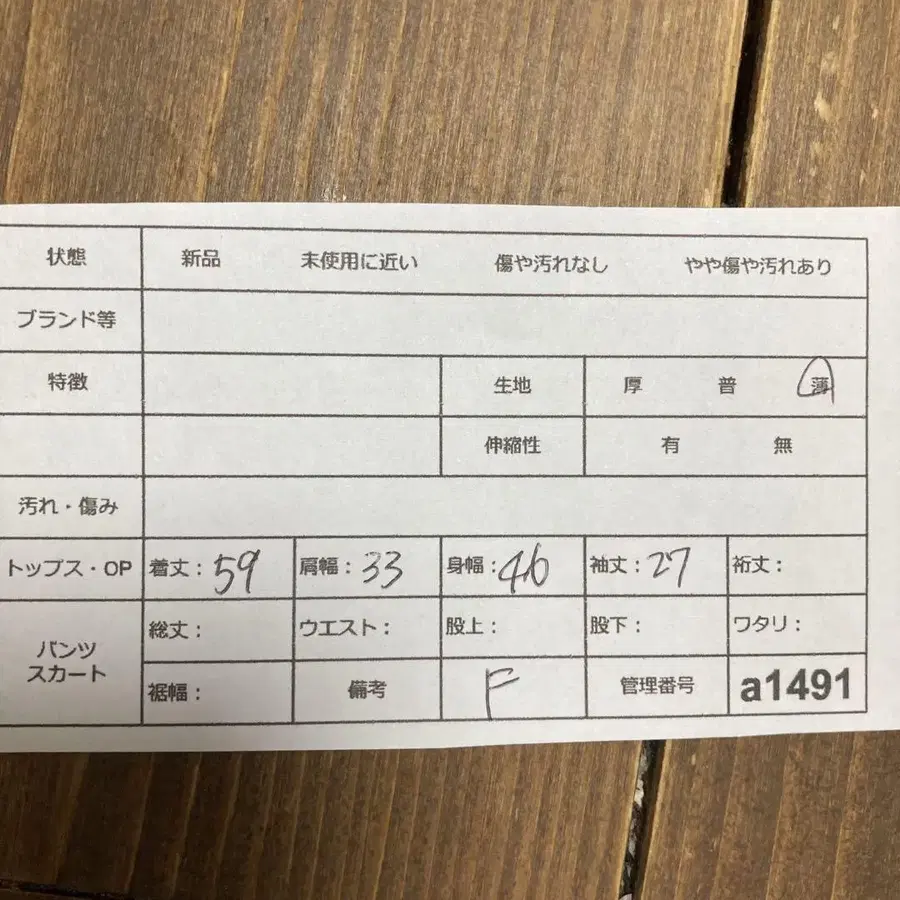 状態 新品 未使用に近い 傷や汚れなし やや傷や汚れあり
ブランド等
特徴 生地 厚 普 薄
伸縮性 有 無
汚れ・傷み
トップス・OP 着丈：59 肩幅：33 身幅：46 袖丈：27 裄丈：
パンツ スカート 総丈： ウエスト： 股上： 股下： ワタリ：
裾幅： 備考 F 管理番号 a1491